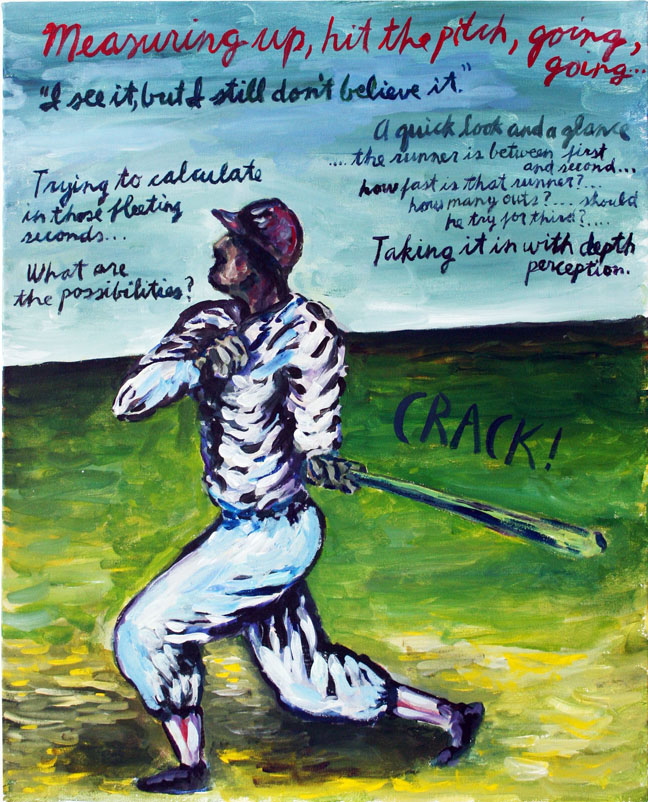 Measuring up, hit the pitch, going,
going...
"I see it, but I still don't believe it."
A quick look and a glance
.... the runner is between first
and second...
how fast is that runner?...
how many outs?... should
he try for third?....
Taking it in with depth
perception.
Trying to calculate
in those fleeting
seconds...
What are
the possibilities?
CRACK!